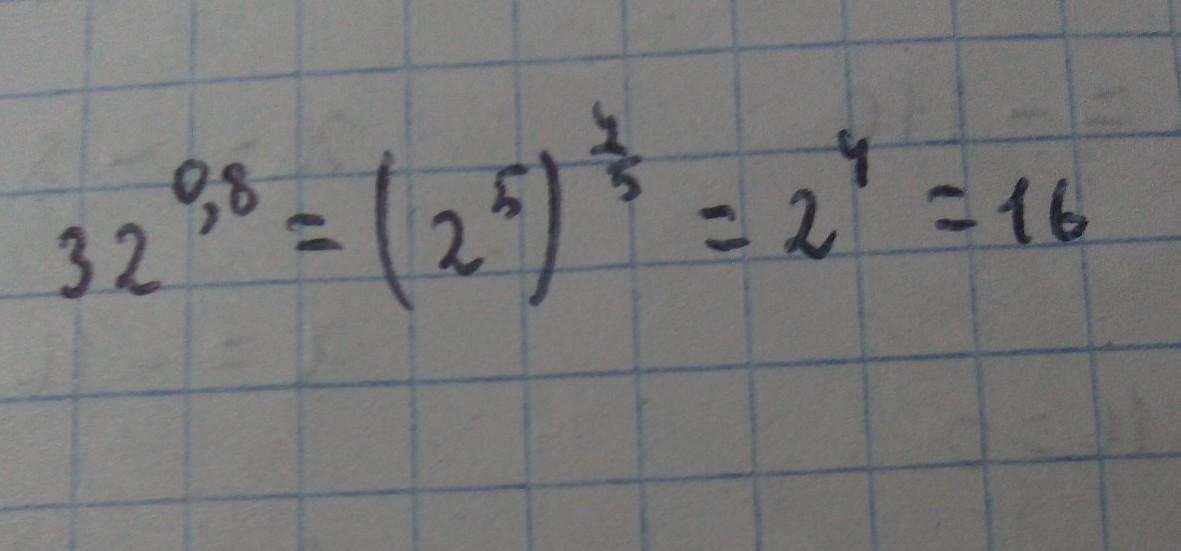 32^0,8 = (2^5)^4/5 = 2^4 = 16